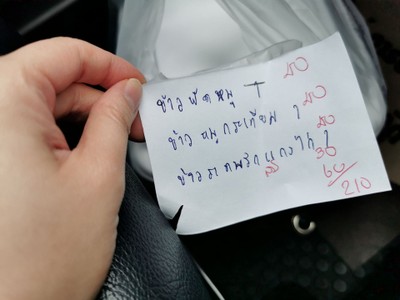 ข้าวผัดหมู 1 40
ข้าวหมูกระเทียม 1 40
ข้าวราดพริกแกงไก่ 1 40
30
60
210